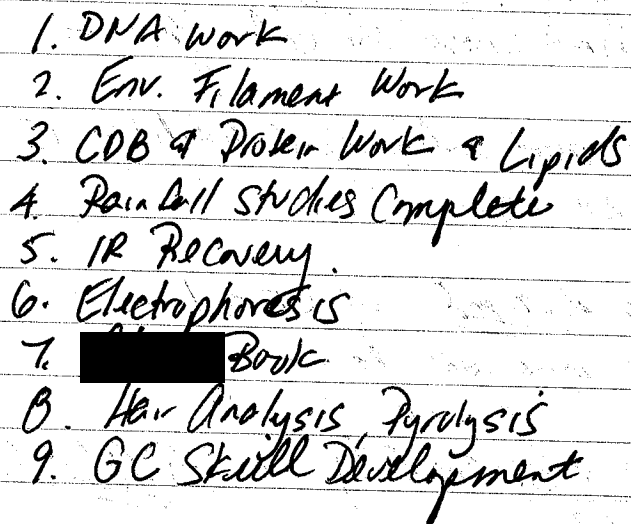 1. DNA Work
2. Env. Filament Work
3. CDB & Protein Work & Lipids
4. Rainfall Studies Complete
5. IR Recovery.
6. Electrophoresis
7. Book
8. Hair Analysis, Pyrolysis
9. GC Skill Development